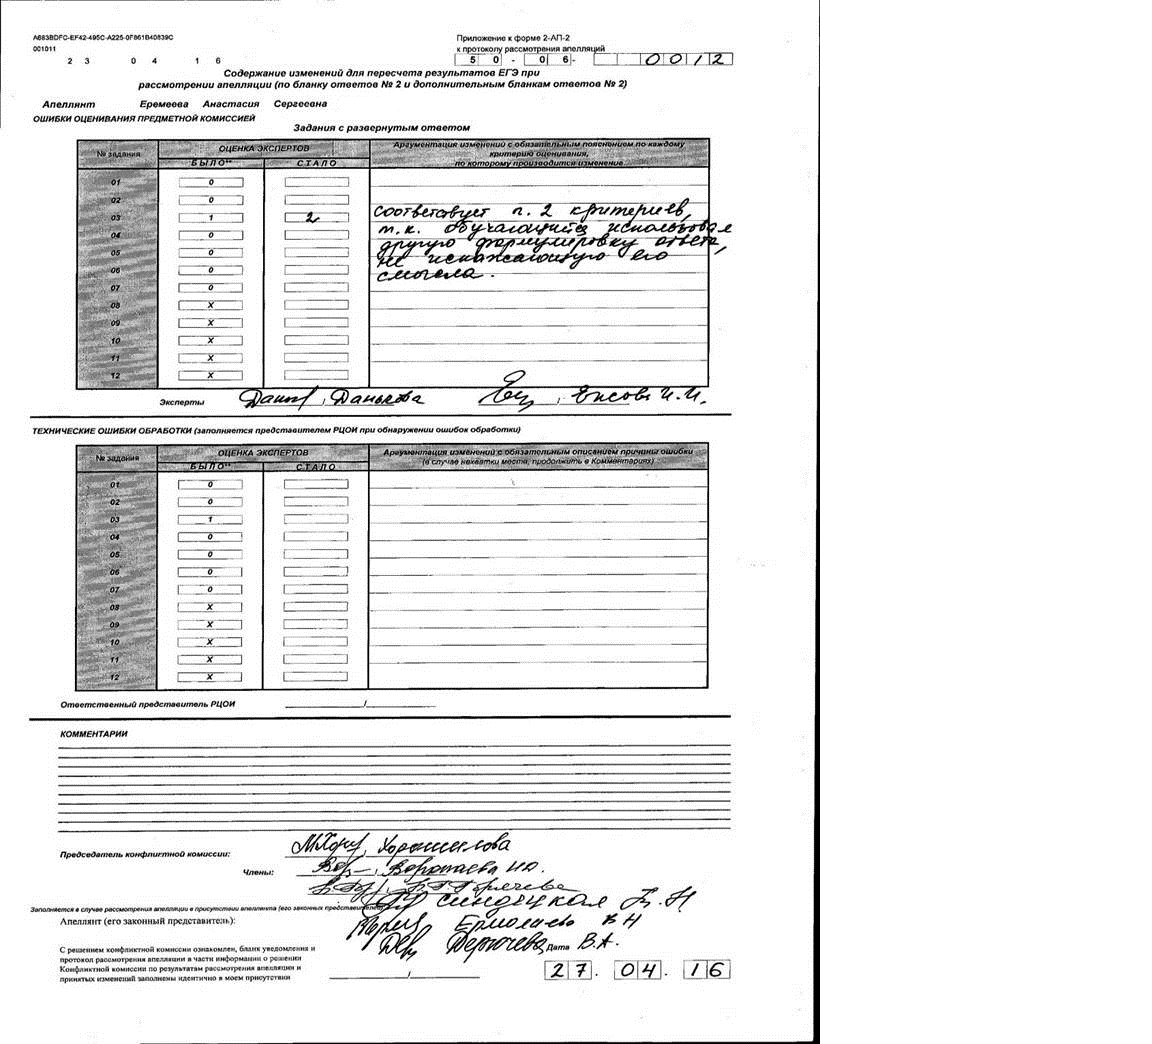 A683BDFC-EF42-495C-A225-0F861B40839C
001011
2 3 0 4 1 6
Приложение к форме 2-АП-2
к протоколу рассмотрения апелляций
5 0 - 0 6 - 0 0 1 2
Содержание изменений для пересчета результатов ЕГЭ при
рассмотрении апелляции (по бланку ответов № 2 и дополнительным бланкам ответов № 2)
Апеллянт Еремеева Анастасия Сергеевна
ОШИБКИ ОЦЕНИВАНИЯ ПРЕДМЕТНОЙ КОМИССИЕЙ
Задания с развернутым ответом
№ задания ОЦЕНКА ЭКСПЕРТОВ Аргументация изменений с обязательным пояснением по каждому
критерию оценивания,
БЫЛО** СТАЛО по которому производится изменение
01 0
02 0
03 1 2 соответсвует п. 2 критериев,
04 0 т.к. обучающийся использовал
05 0 другую формулировку ответа,
не искажающую его
06 0 смысла.
07 0
08 X
09 X
10 X
11 X
12 X
Эксперты , Данькова , И.И.
ТЕХНИЧЕСКИЕ ОШИБКИ ОБРАБОТКИ (заполняется представителем РЦОИ при обнаружении ошибок обработки)
№ задания ОЦЕНКА ЭКСПЕРТОВ Аргументация изменений с обязательным описанием причины ошибки
БЫЛО** СТАЛО (в случае нехватки места, продолжить в Комментариях)
01 0
02 0
03 1
04 0
05 0
06 0
07 0
08 X
09 X
10 X
11 X
12 X
Ответственный представитель РЦОИ /
КОММЕНТАРИИ
Председатель конфликтной комиссии: Хорошилова
Члены: Воропаева
Заполняется в случае рассмотрения апелляции в присутствии апеллянта (его законных представителей)
Апеллянт (его законный представитель):
С решением конфликтной комиссии ознакомлен, бланк уведомления и
протокол рассмотрения апелляции в части информации о решении
Конфликтной комиссии по результатам рассмотрения апелляции и
принятых изменений заполнены идентично в моем присутствии
/
Дата В.А.
27.04.16